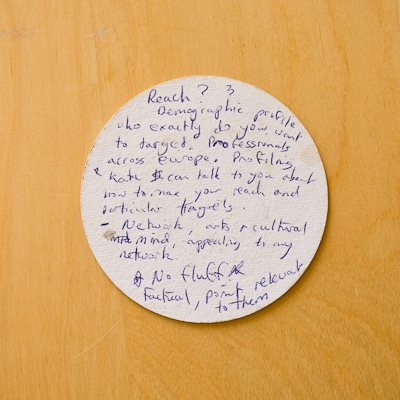 Reach ? 3
Demographic profile
who exactly do you want
to target. Professionals
across europe. Profiling
* Kate $ can talk to you about
how to max your reach and
particular targets.
- Network, arts & cultural
mind, appealing to my
network
* No fluff *
Factual, point relevant
to them